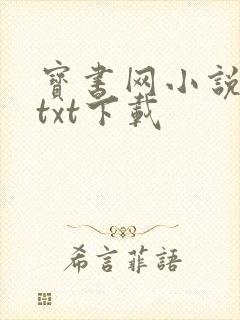 寶書网小說
txt下載
希言菲語